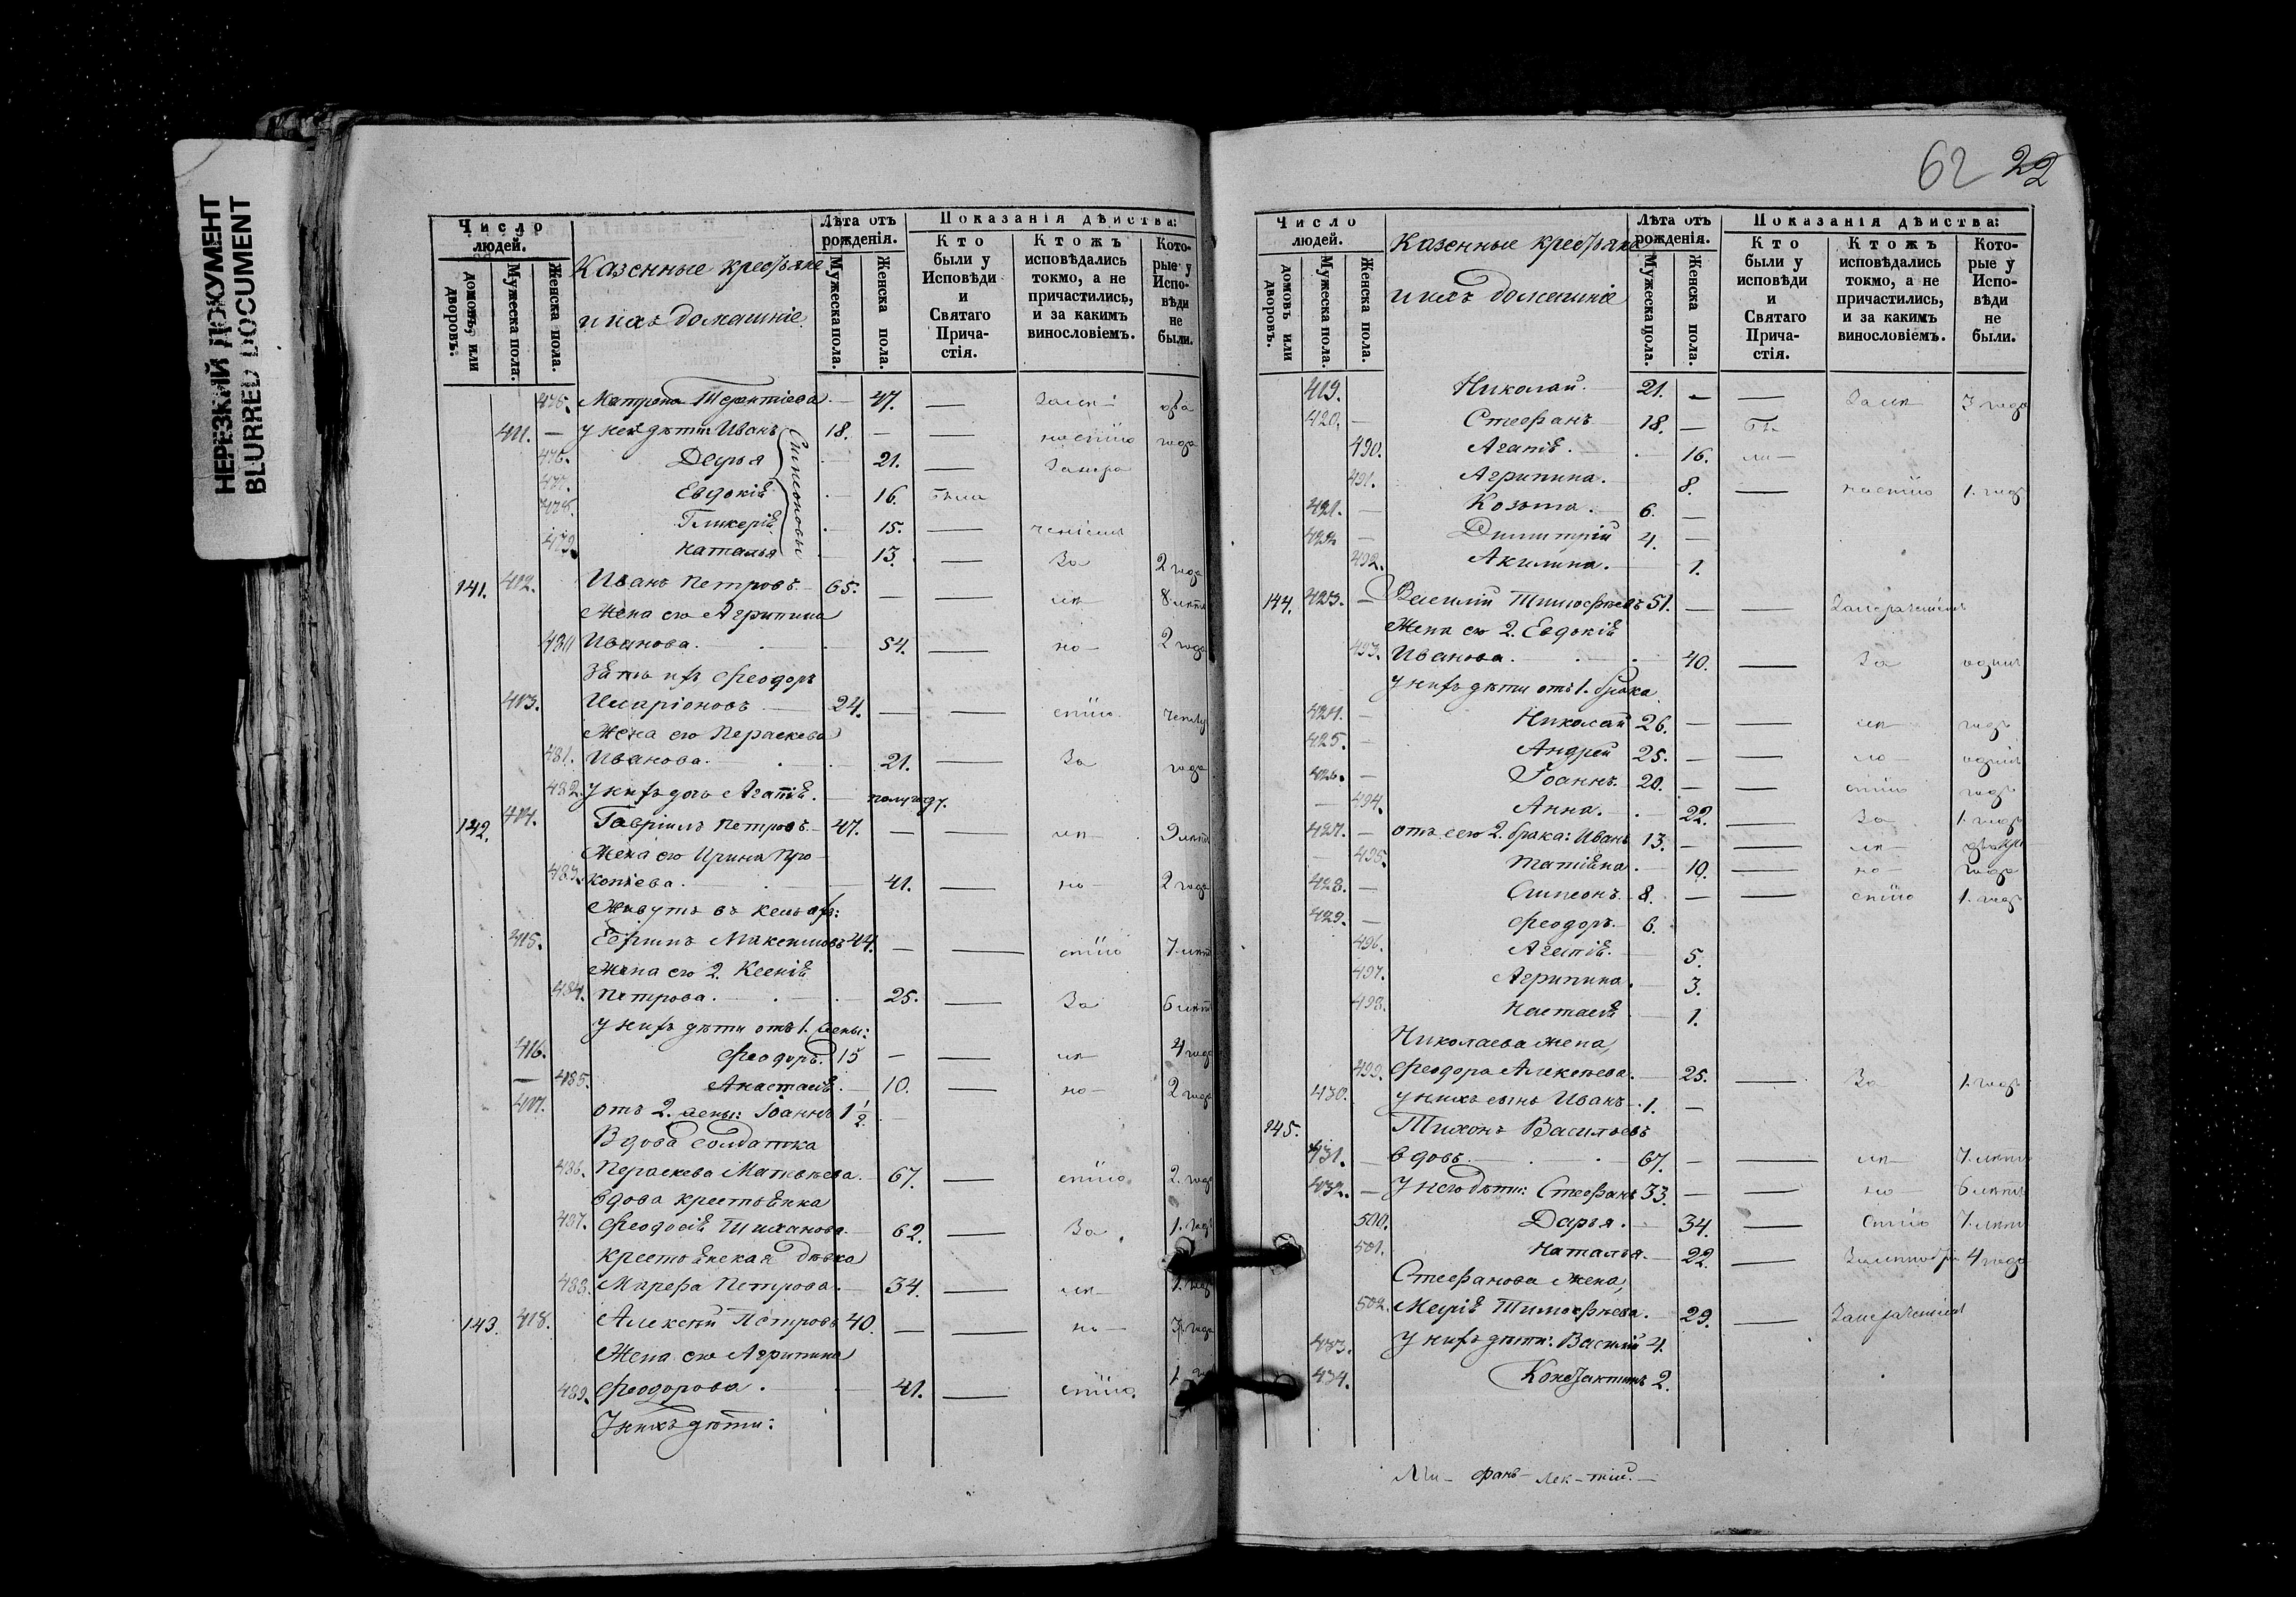 НЕРЕЗКИЙ ДОКУМЕНТ
BLURRED DOCUMENT
Число людей.
домовъ, или дворовъ.
Мужеска пола.
Женска пола.
Казенные крестьяне
и ихъ домашніе.
Лѣта отъ рожденія.
Мужеска пола.
Женска пола.
Показанія дѣйства:
Кто были у Исповѣди и Святаго Причастія.
Ктожъ исповѣдались токмо, а не причастились, и за какимъ винословіемъ.
Которые у Исповѣди не были.
475. Матрона Терентіева. 47. — два
411. — у ней дѣти: Иванъ 18. — — года
476. Дарья 21. —
477. Евдокія 16.
478. Гликерія 15. —
479. Наталья 13. — За 2 года
Симеоновы
141. 412. Иванъ Петровъ 65. — — 8 лѣтъ
Жена его Агрипина
480 Иванова. 54. — но — 2 года
Зять ихъ Феодоръ
413. Иларіоновъ 24. — — стію
Жена его Параскева
481. Иванова. 21. — За года
482. у нихъ дочь Агапія. полугоду.
142. 414. Гавріилъ Петровъ 47. — — лѣ— 9 лѣтъ
Жена его Ирина Про-
483. копіева. 41. — но— 2 года
Живутъ въ кельяхъ:
415. Ефримъ Максимовъ 44. — — стію 7 лѣтъ
Жена его 2. Ксенія
484. Петрова. 25. — За 6 лѣтъ
у нихъ дѣти отъ 1. жены:
416. Феодоръ. 15 — — лѣ— 4 года
— 485. Анастасія. 10. — но— 2 года
417. отъ 2. жены: Іоаннъ 1 1/2.
Вдова солдатка
486. Параскева Матвѣева. 67. — стію. 2. года
Вдова крестьянка
487. Феодосія Тиханова. 62. — За 1. годъ
крестьянская дѣвка
488. Марфа Петрова. 34. — лѣ— 1. годъ
143. 418. Алексѣй Петровъ 40. — — но— 3. года
Жена его Агрипина
489. Феодорова. 41. — стію.
У нихъ дѣти:
62 22
Число людей.
домовъ или дворовъ.
Мужеска пола.
Женска пола.
Казенные крестьяне
и ихъ домашніе
Лѣта отъ рожденія.
Мужеска пола.
Женска пола.
Показанія дѣйства:
Кто были у исповѣди и Святаго Причастія.
Ктожъ исповѣдались токмо, а не причастились, и за какимъ винословіемъ.
Которые у Исповѣди не были.
419. Николай. 21. — — Залѣ— 3 года
420. — Стефанъ 18. — Бы
490. Агапія. 16. ли—
491. Агрипина. 8. — ностію 1. годъ
421. — Козьма. 6. —
422 — Димитрій 4. —
492. Акилина. 1.
144. 423. — Василій Тимофѣевъ 51. — —
Жена его 2. Евдокія
493. Иванова. 40. — За одинъ
у нихъ дѣти отъ 1. брака
424. — Николай 26. — — лѣ— годъ
425. — Андрей 25. — — но— одинъ
426. — Іоаннъ. 20. — — стію годъ
— 494. Анна. 22. — За 1. годъ
427. — отъ сего 2. брака: Иванъ 13. — — лѣ—
— 495. Татіяна. 10. — но— года
428. — Симеонъ. 8. — — стію 1. годъ
429. — Феодоръ. 6.
496. Агапія. 5.
497. Агрипина. 3.
498. Настасія 1.
Николаева жена,
499. Феодора Алексѣева. 25. — За 1. годъ
430. у нихъ сынъ Иванъ 1. —
145. Тихонъ Васильевъ
431. — вдовъ 67. — — лѣ— 7. лѣтъ
432. — У него дѣти: Стефанъ 33. — — но— 6 лѣтъ
500. Дарья. 34. — стію 7. лѣтъ
501. Наталья. 22. — 4 года
Стефанова жена,
502. Марія Тимофѣева. 29. —
433. У нихъ дѣти: Василій 4.
434. Константинъ 2.
фанъ— Лек—тій.—